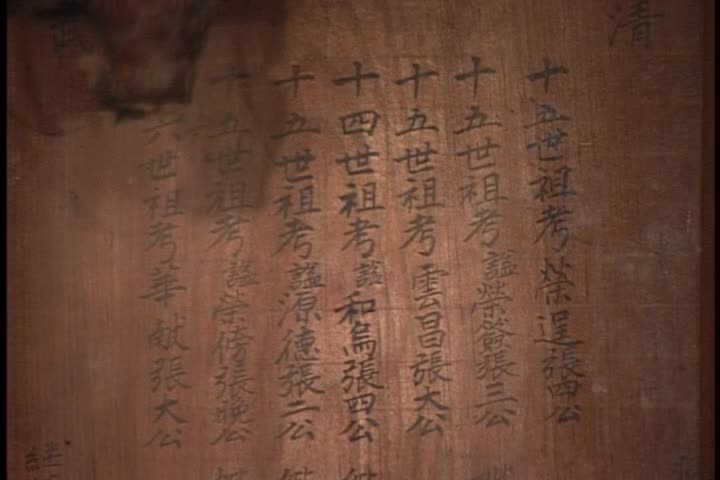 清
十五世祖考榮逞張四公
十五世祖考諡榮簽張三公
十五世祖考雲昌張大公
十四世祖考諡和烏張四公
十五世祖考諡源德張二公
十五世祖考諡榮傍張晚公
六世祖考華献張大公